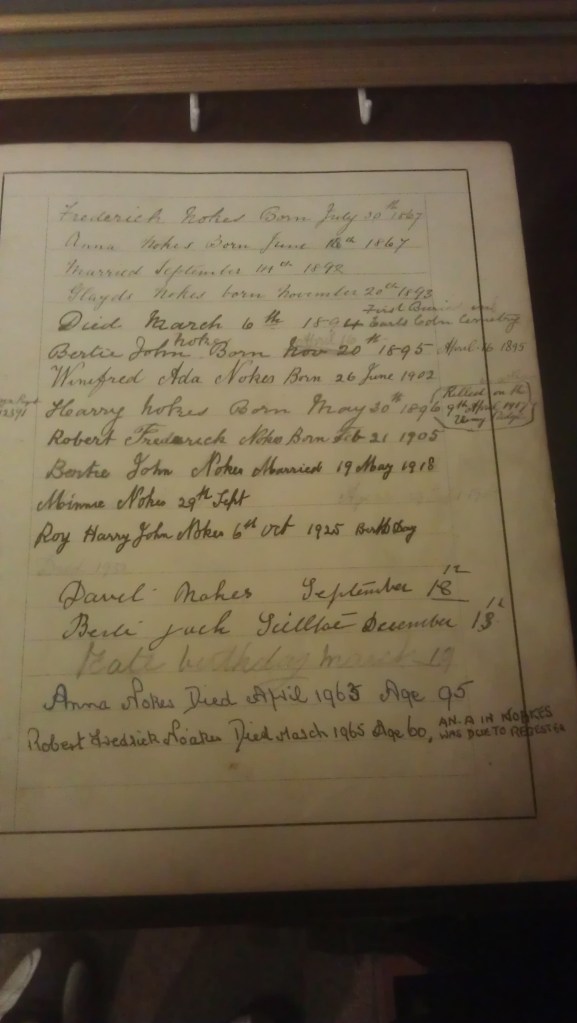 Frederick Nokes Born July 30th 1867
Anna Nokes Born June 18th 1867
Married September 1892
Glayds Nokes born November 20th 1893
Died March 6th 1894 First Burin in Earls Coln Cemetery
Bertie John Nokes Born Nov 20th 1895 April 16 1895
Winifred Ada Nokes Born 26 June 1902
Harry Nokes Born May 30th 1896 (Killed on the 9th April 1917
Robert Frederick Nokes Born Feb 21 1905
Bertie John Nokes Married 19 May 1918
Minnie Nokes 29th Sept
Roy Harry John Nokes 6th Oct 1925 Birth Day
Nokes September 18
Jack December 13
Kate birthday march 19
Anna Nokes Died April 1963 Age 95
Robert Fredrick Noakes Died March 1965 Age 60, AN. A IN NOAKES
WAS DUE TO REGESTER